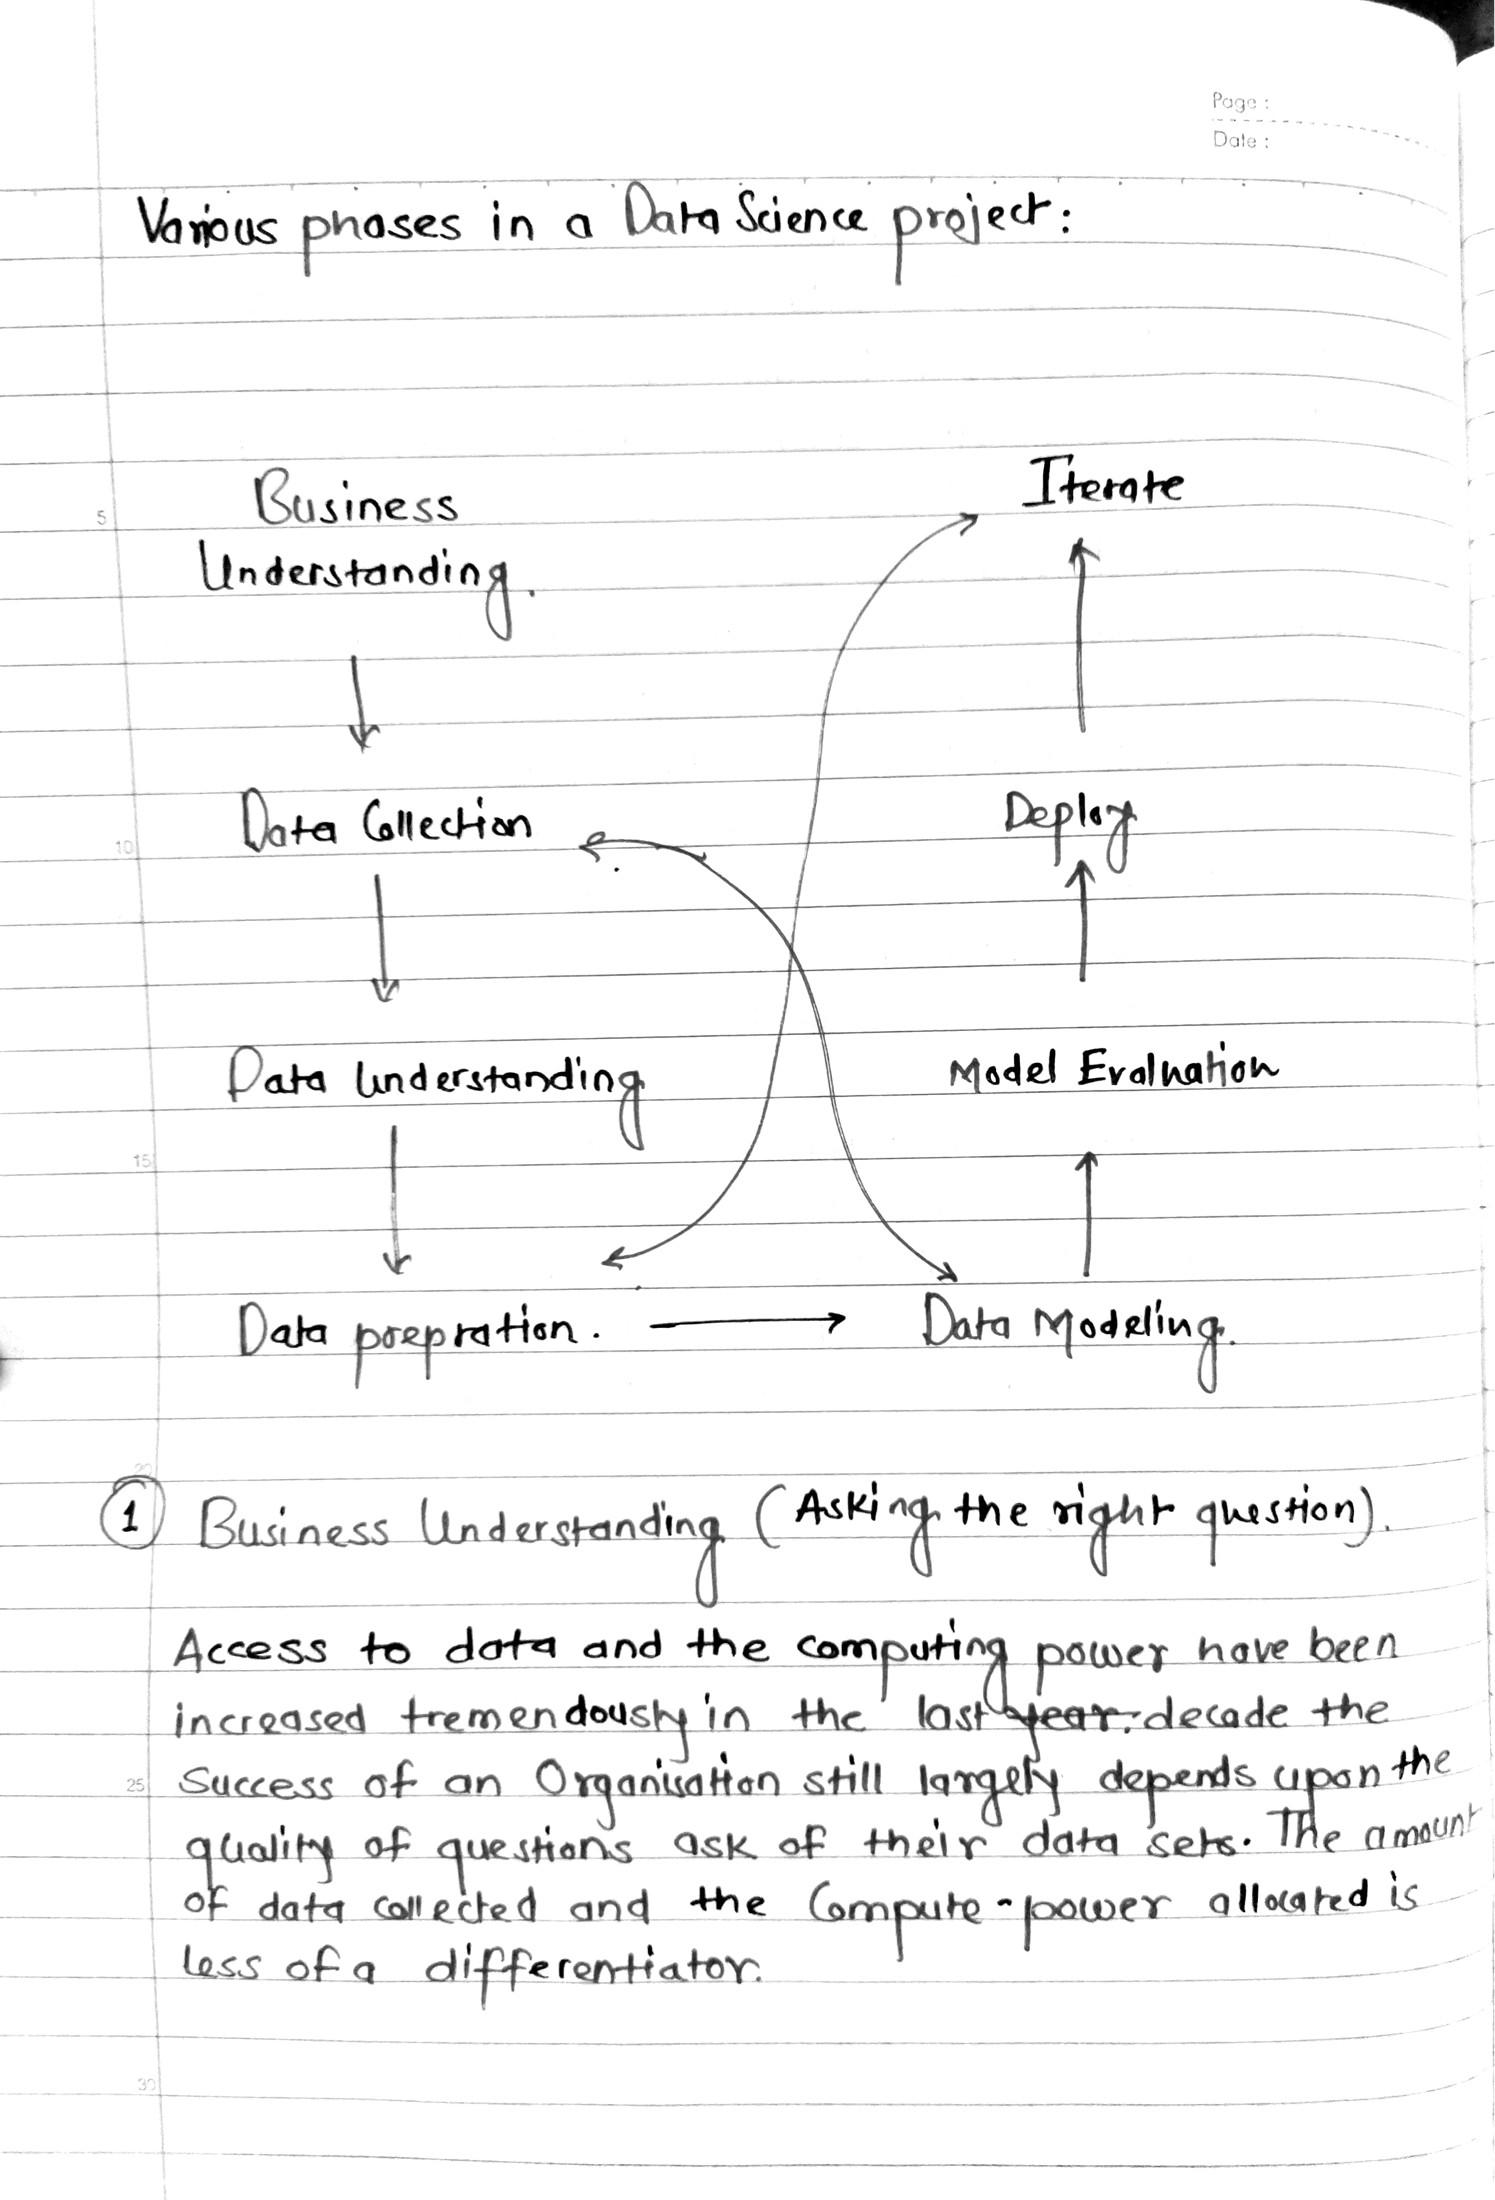 Page :
Date :
Various phases in a Data Science project:
Business
Understanding.
Iterate
5
Data Collection
Deploy
10
Data Understanding
Model Evaluation
15
Data prepration.
Data Modeling.
20
1 Business Understanding (Asking the right question).
Access to data and the computing power have been
increased tremendously in the last year. decade the
Success of an Organisation still largely depends upon the
25
quality of questions ask of their data sets. The amount
of data collected and the Compute-power allocated is
less of a differentiator.
30